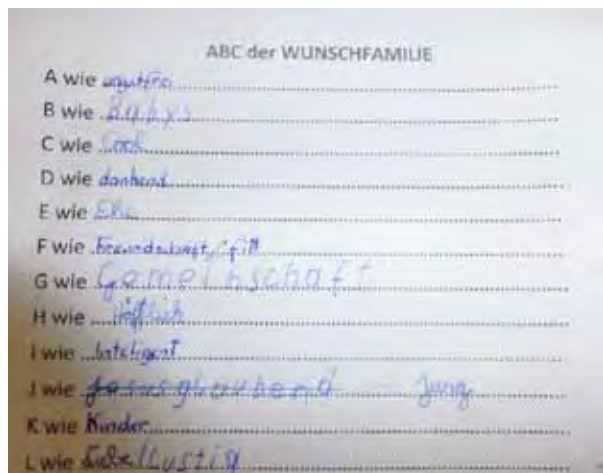 ABC der WUNSCHFAMILIE
A wie
B wie Babys
C wie Cool
D wie dankend
E wie Ehe
F wie Freundschaft, fitt
G wie Gemeinschaft
H wie Höflich
I wie Inteligent
J wie Jesusglaubend Jung
K wie Kinder
L wie Liebe/Lustig